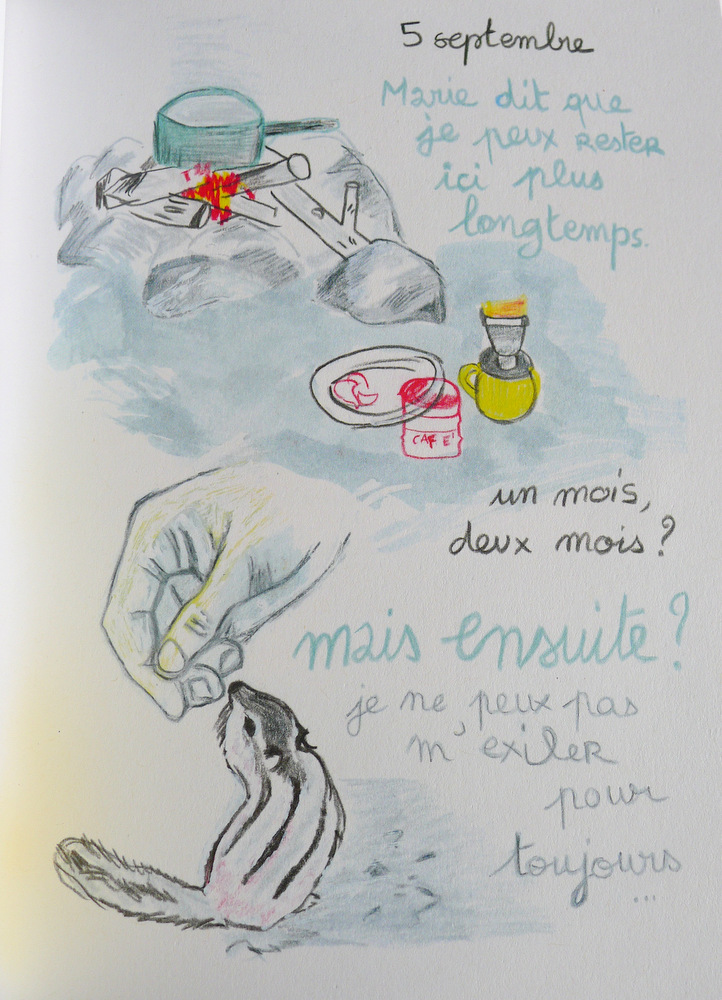 5 septembre
Marie dit que
je peux rester
ici plus
longtemps.
CAFE'
un mois,
deux mois ?
mais ensuite ?
je ne peux pas
m'exiler
pour
toujours
...